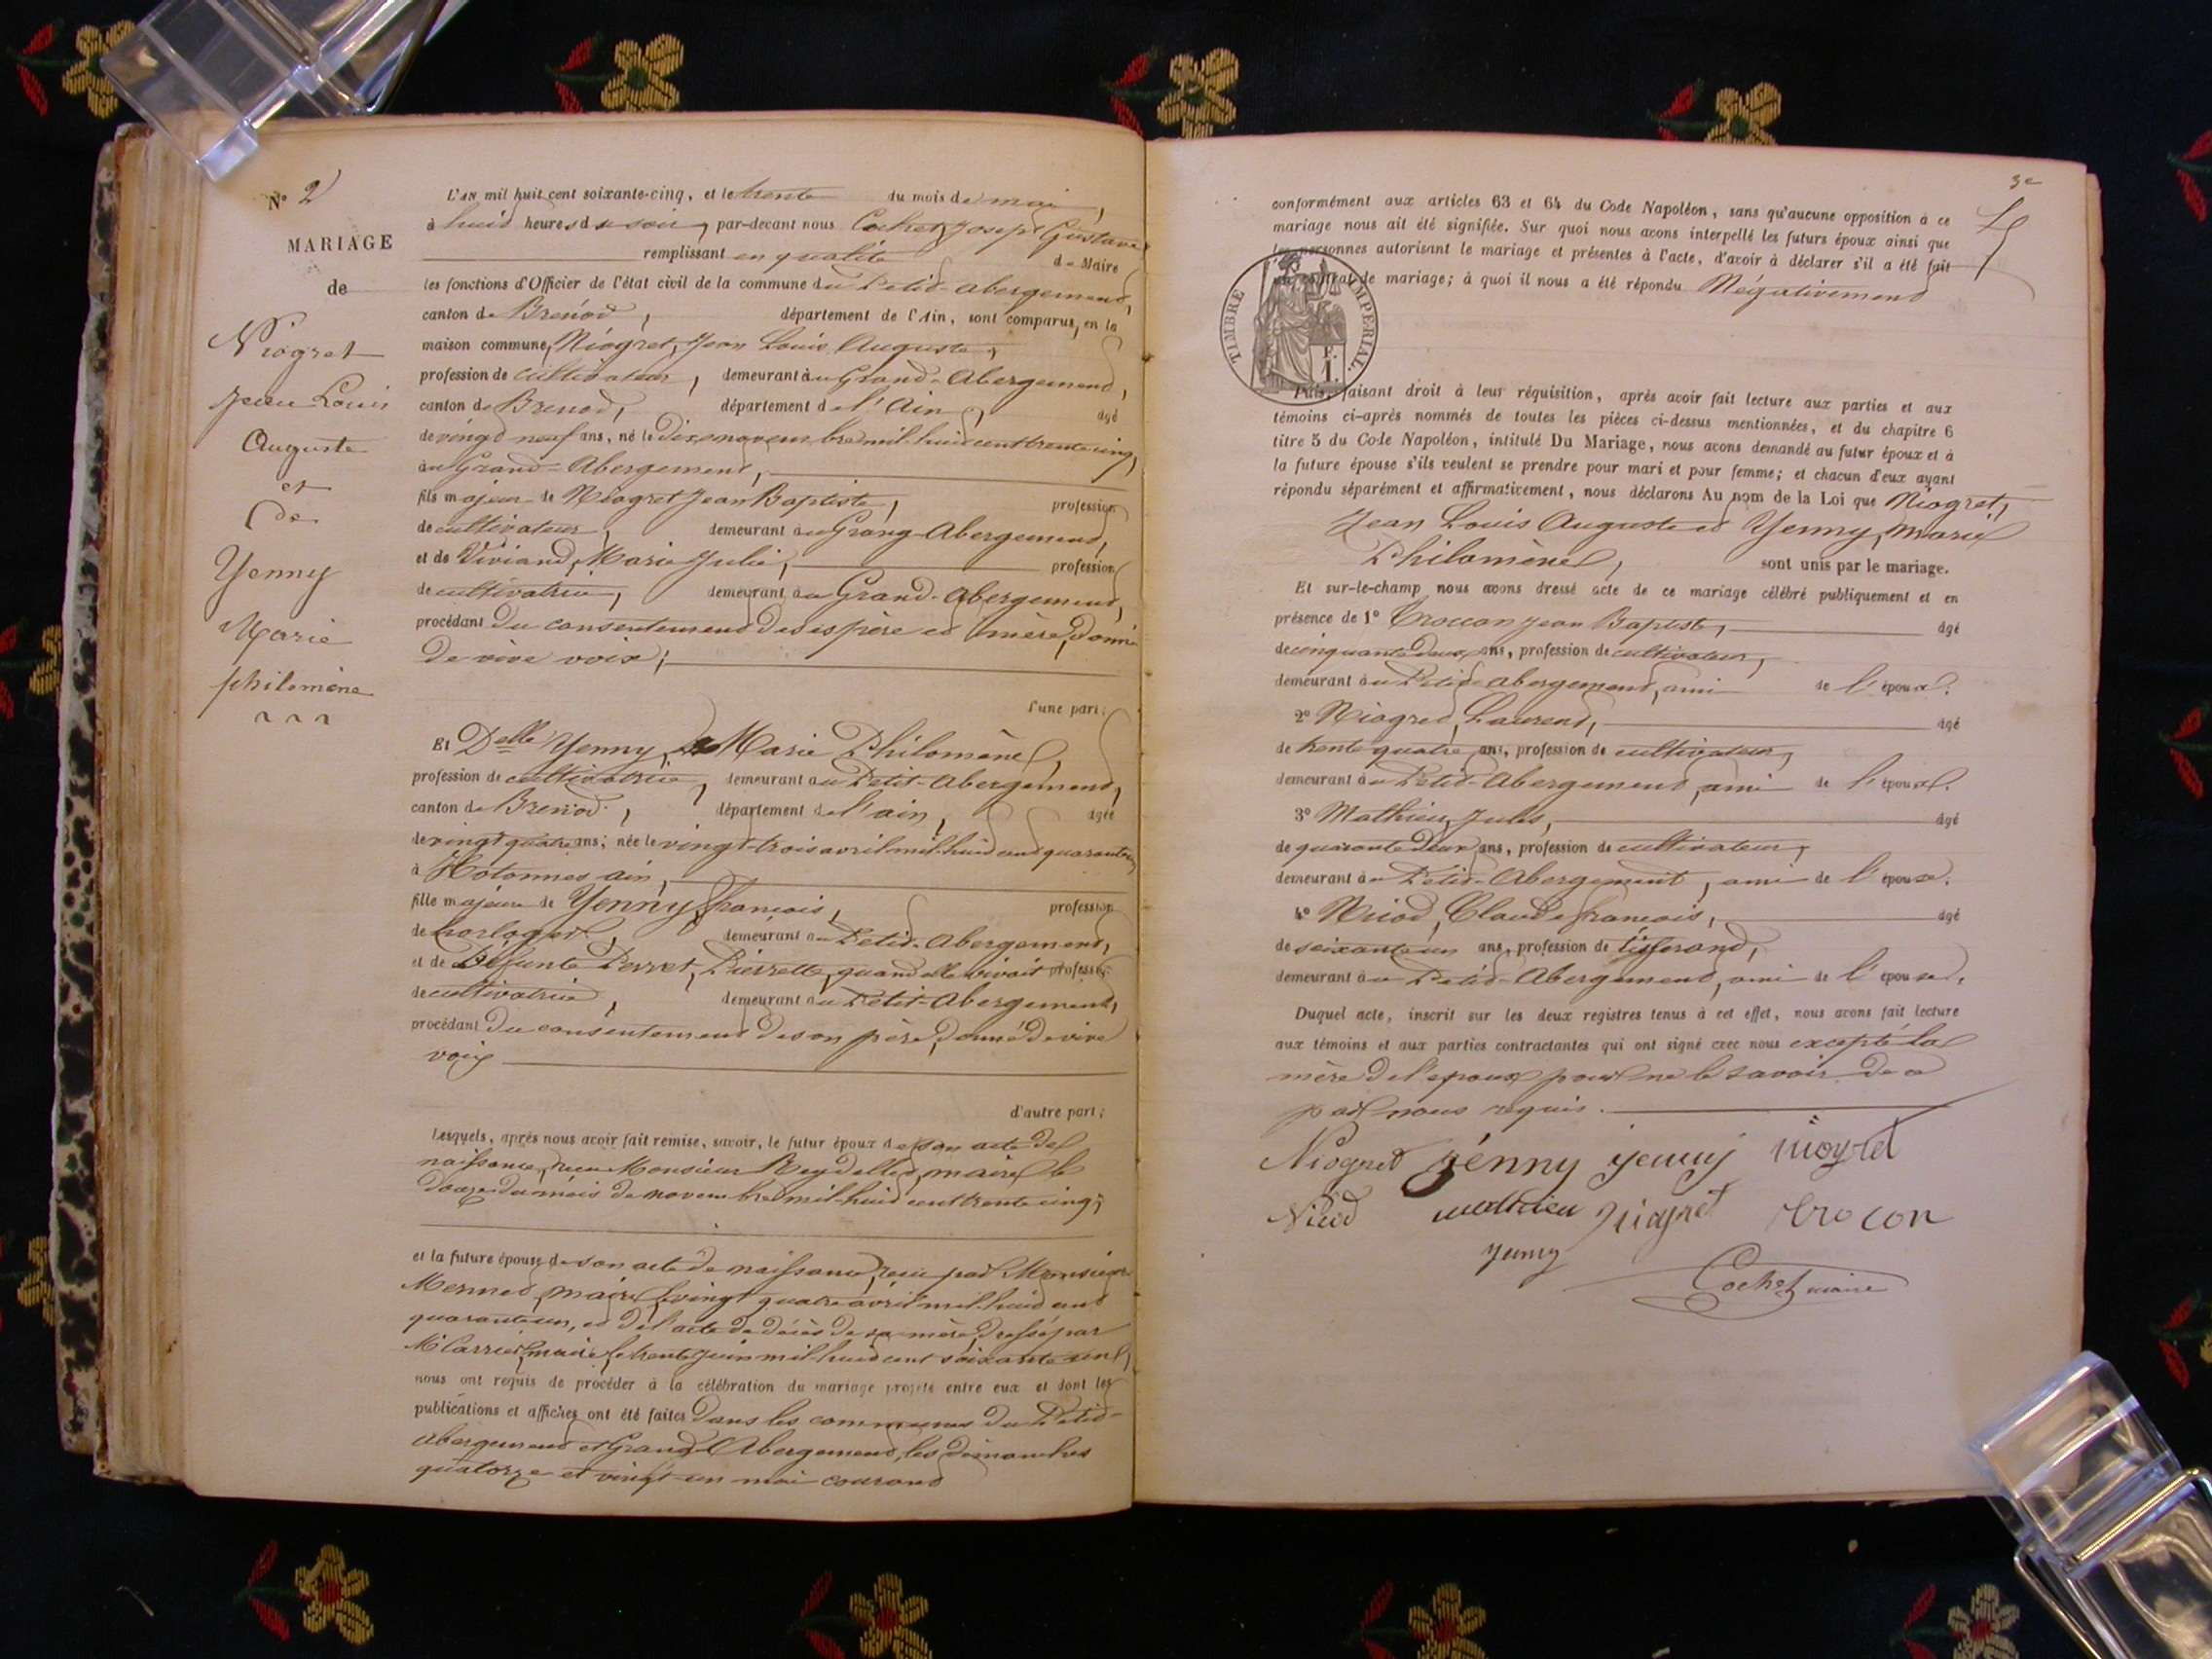 N° 2
MARIAGE
de
Niogret
Jean Louis
Auguste
et
de
Yenny
Marie
philomène
L'AN mil huit cent soixante-cinq, et le trente du mois de mai,
à huit heures du soir, par-devant nous Cochet, Joseph Gustave
remplissant en qualité de Maire
les fonctions d'Officier de l'état civil de la commune du Petit-Abergement,
canton de Brénod, département de l'Ain, sont comparus, en la
maison commune, Niogret, Jean Louis Auguste,
profession de cultivateur, demeurant au Grand-Abergement,
canton de Brenod, département de l'Ain, âgé
de vingt neuf ans, né le dix novembre mil huit cent trente cinq,
au Grand-Abergement,
fils majeur de Niogret Jean Baptiste, profession
de cultivateur, demeurant au Grang-Abergement,
et de Viviand, Marie Julie, profession
de cultivatrice, demeurant au Grand-Abergement,
procédant du consentement de ses père et mère, donné
de vive voix;
d'une part;
Et Delle Yenny, Marie Philomène,
profession de cultivatrice, demeurant au Petit-Abergement,
canton de Brénod, département de l'ain, âgée
de vingt quatre ans; née le vingt-trois avril mil-huit cent quarante un
à Hotonnes ain,
fille majeure de Yenny, françois, profession
de horloger, demeurant au Petit-Abergement,
et de Défunte Perret, Pierrette, quand elle vivait profession
de cultivatrice, demeurant au Petit-Abergement,
procédant du consentement de son père, donné de vive
voix
d'autre part;
Lesquels, après nous avoir fait remise, savoir, le futur époux de son acte de
naissance, reçu Monsieur Reydellet, maire le
douze du mois de novembre mil-huit cent trente cinq;
et la future épouse de son acte de naissance, reçu par Monsieur
Mermet, maire, le vingt quatre avril mil-huit cent
quarante un, et de l'acte de décès de sa mère dressé par
Mr Carrier, maire, le trente juin mil-huit cent soixante un,
nous ont requis de procéder à la célébration du mariage projeté entre eux et dont les
publications et affiches ont été faites dans les communes du Petit-
Abergement et Grand-Abergement, les dimanches
quatorze et vingt-un mai courant
conformément aux articles 63 et 64 du Code Napoléon, sans qu'aucune opposition à ce
mariage nous ait été signifiée. Sur quoi nous avons interpellé les futurs époux ainsi que
les personnes autorisant le mariage et présentes à l'acte, d'avoir à déclarer s'il a été fait
un contrat de mariage; à quoi il nous a été répondu Négativement
TIMBRE IMPERIAL
F. 1.
Puis, faisant droit à leur réquisition, après avoir fait lecture aux parties et aux
témoins ci-après nommés de toutes les pièces ci-dessus mentionnées, et du chapitre 6
titre 5 du Code Napoléon, intitulé Du Mariage, nous avons demandé au futur époux et à
la future épouse s'ils veulent se prendre pour mari et pour femme; et chacun d'eux ayant
répondu séparément et affirmativement, nous déclarons Au nom de la Loi que Niogret,
Jean Louis Auguste et Yenny, Marie
Philomène, sont unis par le mariage.
Et sur-le-champ nous avons dressé acte de ce mariage célébré publiquement et en
présence de 1° Troccon Jean Baptiste, âgé
de cinquante deux ans, profession de cultivateur,
demeurant au Petit-Abergement, ami de l'époux.
2° Niogret, Laurent, âgé
de trente quatre ans, profession de cultivateur,
demeurant au Petit-Abergement, ami de l'époux.
3° Mathieu, Jules, âgé
de quarante deux ans, profession de cultivateur,
demeurant au Petit-Abergement, ami de l'épouse.
4° Niod, Claude françois, âgé
de soixante un ans, profession de tisserand,
demeurant au Petit-Abergement, ami de l'épouse.
Duquel acte, inscrit sur les deux registres tenus à cet effet, nous avons fait lecture
aux témoins et aux parties contractantes qui ont signé avec nous excepté la
mère de l'époux pour ne le savoir de ce
par nous requis.
Niogret yenny yenny niogret
Niod mathieu niogret trocon
yenny
Cochet maire